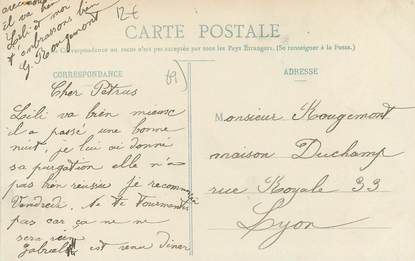 il va bien
Loili et moi
t'embrassons bien
G. Rougemont
12€
CARTE POSTALE
La Correspondance au recto n'est pas acceptée par tous les Pays Étrangers. (Se renseigner à la Poste.)
CORRESPONDANCE
69
ADRESSE
Cher Petrus
Loili va bien mieux
il a passé une bonne
nuit, je lui ai donné
sa purgation elle n'a
pas bien réussie je recommence
Vendredi. Ne te tourmentes
pas car ça ne ne
sera rien
Gabriel est venu diner
Monsieur Rougemont
maison Duchamp
rue Royale 33
Lyon